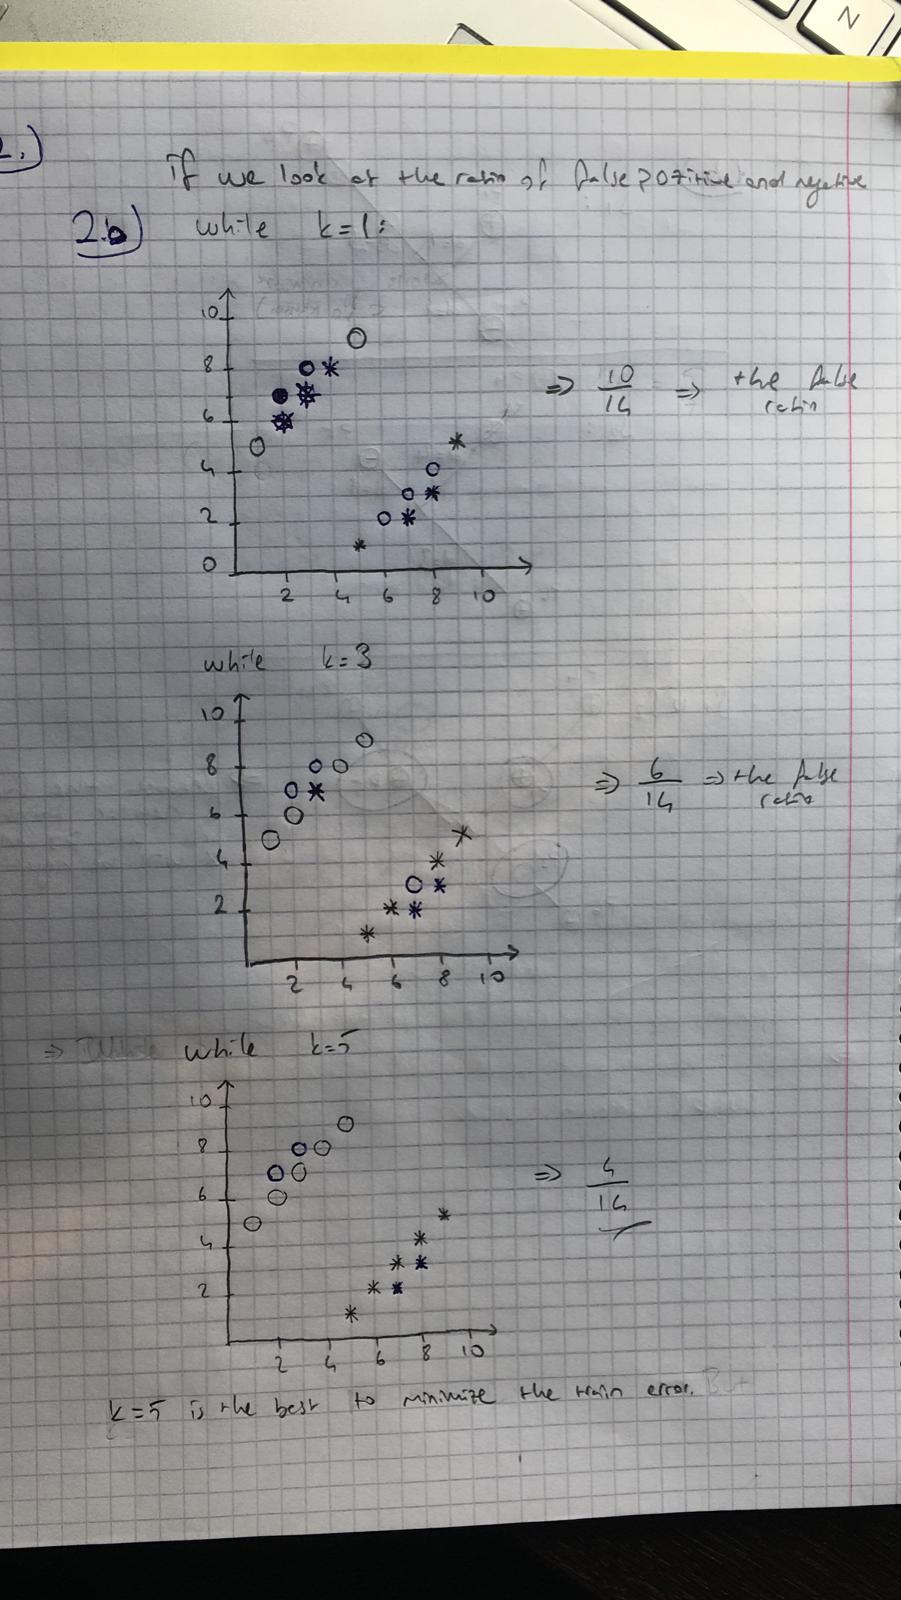 N
2.)
If we look at the ratio of false positive and negative
2.b) while k=1:
10
8
6
4
2
0
2 4 6 8 10
=> 10/14 => the false
ratio
while k=3
10
8
6
4
2
2 4 6 8 10
=> 6/14 => the false
ratio
=> while k=5
10
8
6
4
2
2 4 6 8 10
=> 4/14
k=5 is the best to minimize the train error. But